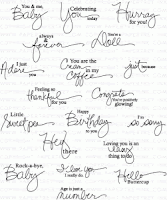 You & me Baby
Celebrating You today
Hurray for you!
always & forever
You're a Doll
I Just Adore you
You are the Cream in my Coffee
just because
Feeling so thankful for you
Congrats
You're positively glowing!
Little Sweet pea
Happy Birthday to you
I'm so sorry
Hey there
Loving you is an easy thing to do!
Rock-a-bye, Baby
I love you
I totally do!
Hello
Buttercup
Age is just a number